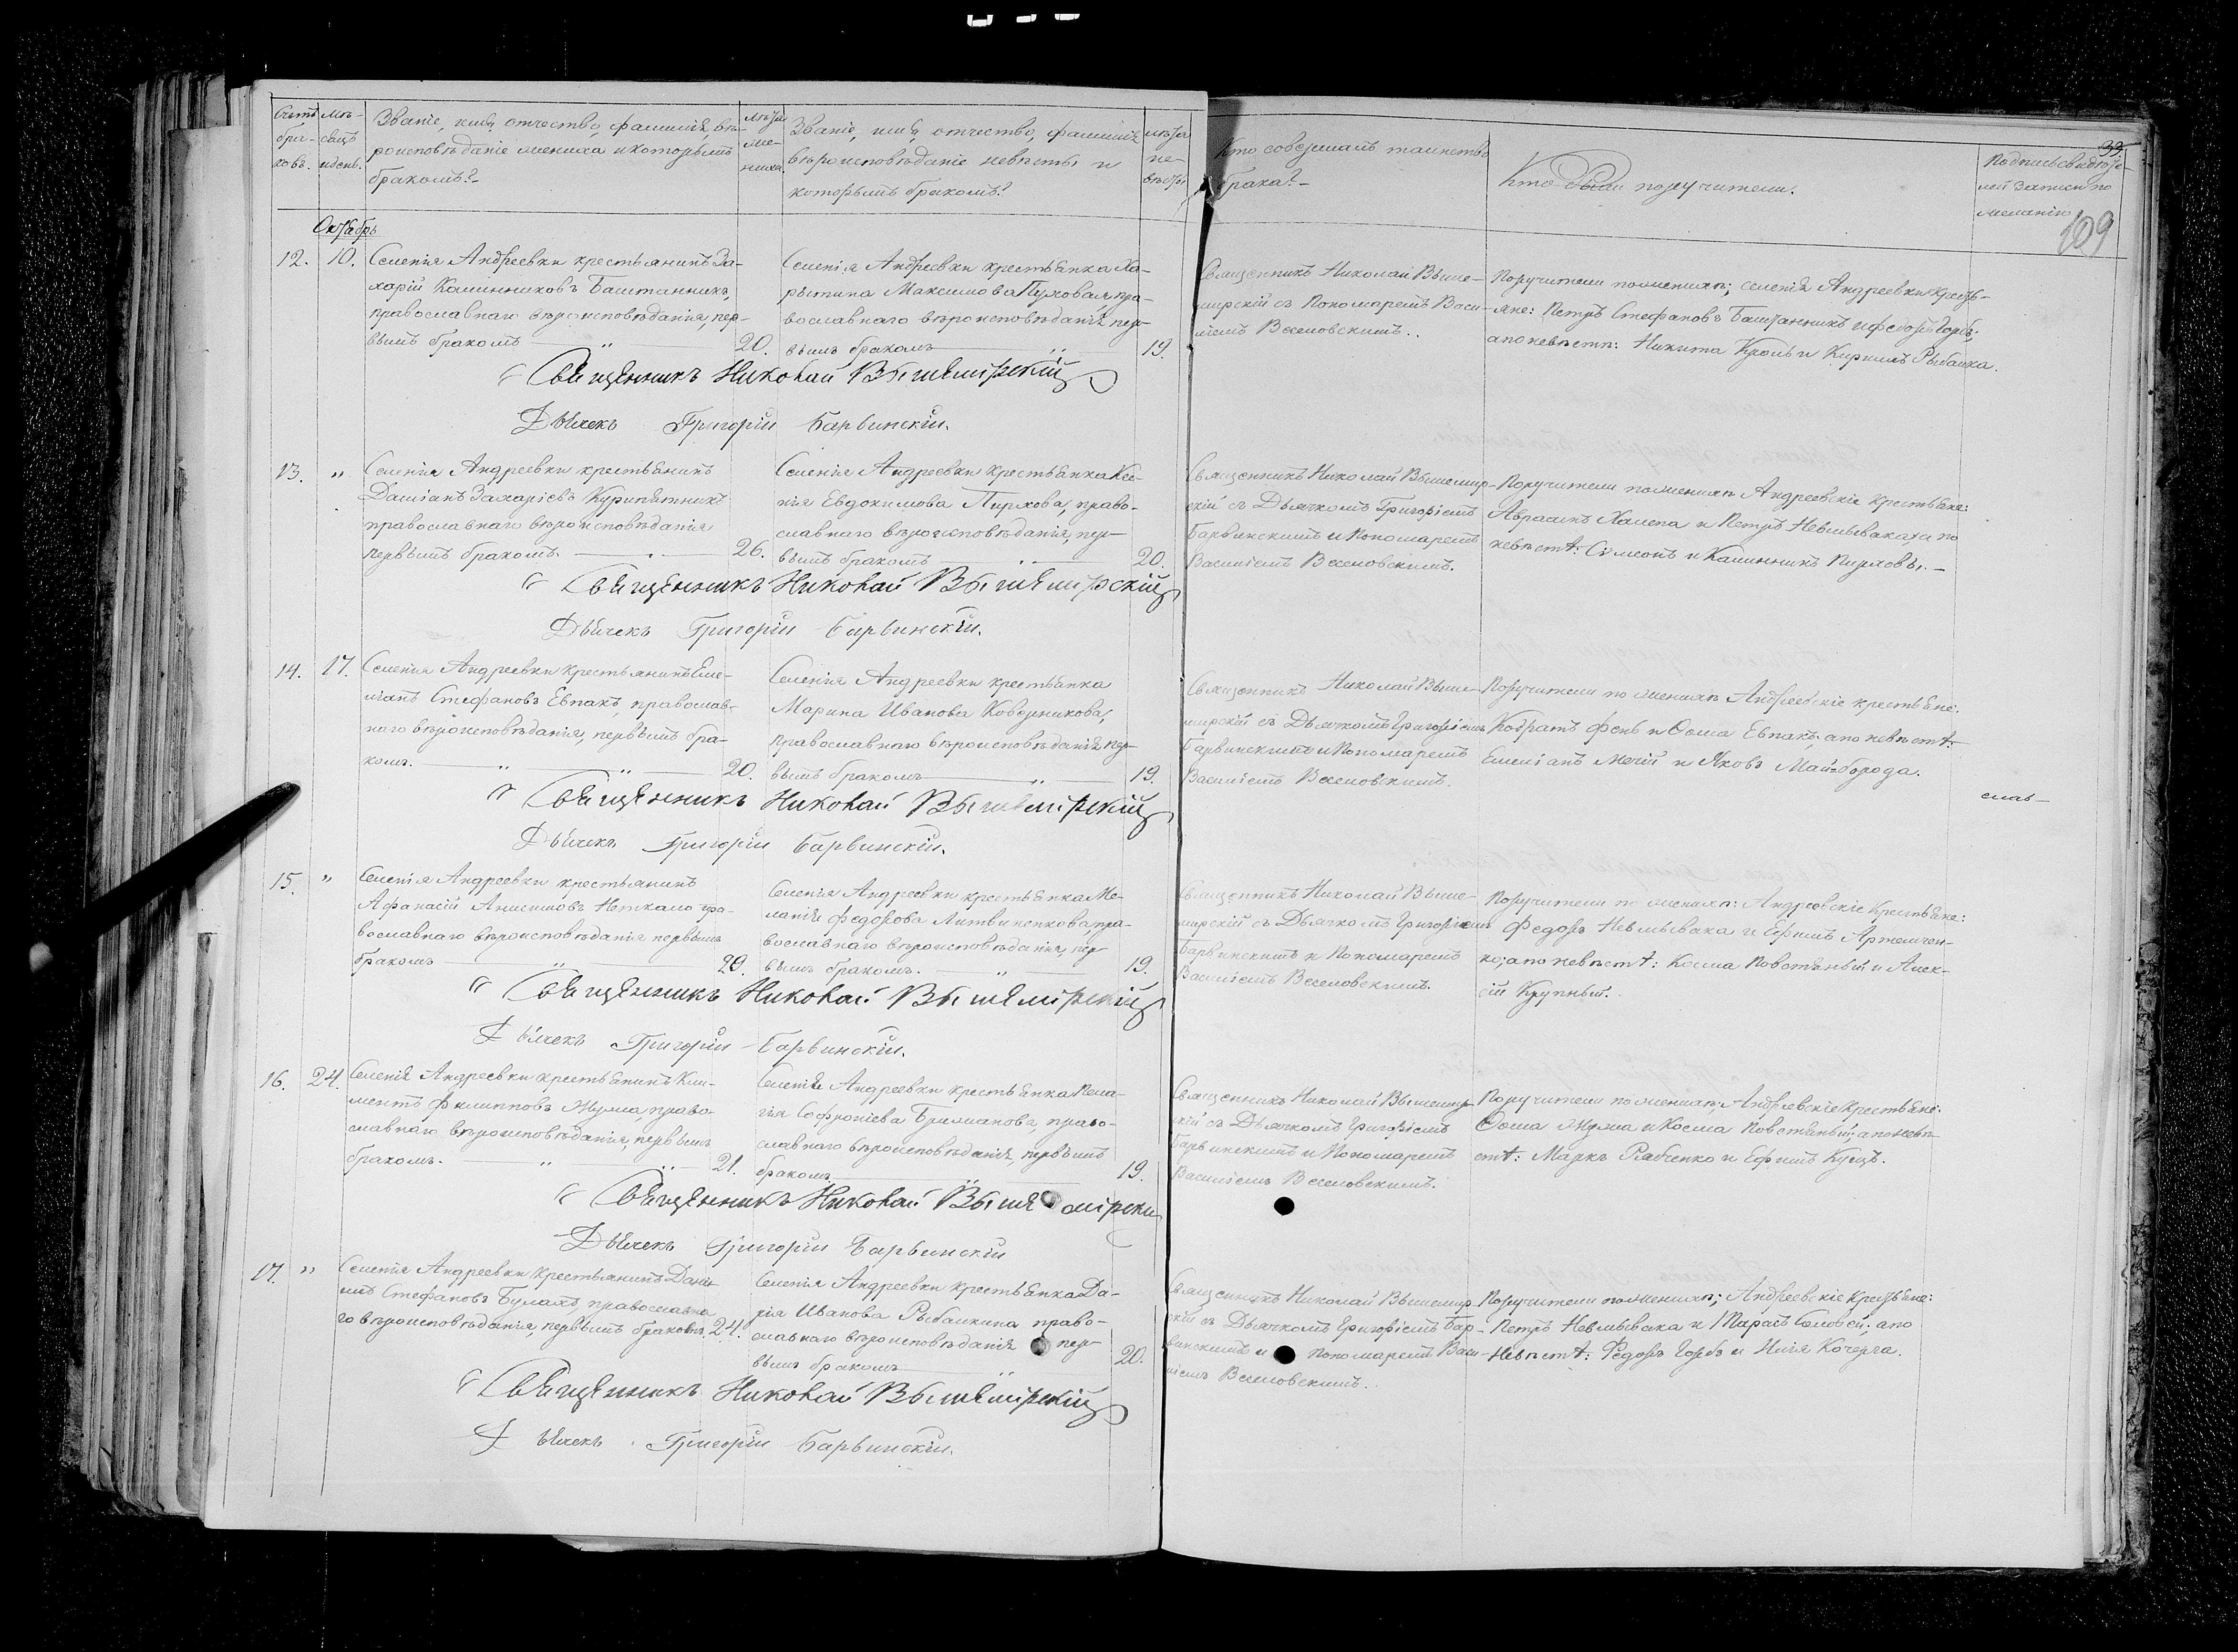 Счетъ бра-ковъ.
Мѣ-сяцъ и день.
Званіе, имя, отчество, фамилія, вѣ-
роисповѣданіе жениха и которымъ
бракомъ?-
Лѣта
же-
ниха.
Званіе, имя, отчество, фамилія,
вѣроисповѣданіе невѣсты и
которымъ бракомъ?
Лѣта
не-
вѣсты
Кто совершалъ таинство
брака?-
Кто были поручители.
33
Подпись свидѣте-
лей записи по
желанію
109
Октябрь
12. 10. Селенія Андреевки крестьянинъ За-
харій Калинниковъ Баштанникъ,
православнаго вѣроисповѣданія, пер-
вымъ бракомъ — „ — 20.
Селенія Андреевки крестьянка Ха-
ритина Максимова Пуховая, пра-
вославнаго вѣроисповѣданія, пер-
вымъ бракомъ — „ — 19.
Священникъ Николай Выше-
мирскій съ Пономаремъ Васи-
ліемъ Веселовскимъ.
Поручители по женихѣ; селенія Андреевки кресть-
яне: Петръ Стефановъ Баштанникъ и Федоръ Горбъ;
а по невѣстѣ: Никита Кроль и Кирилъ Рыбалка.
Священникъ Николай Вышемірскій
Дьячекъ Григорій Барвинскій.
13. „ Селенія Андреевки крестьянинъ
Даміанъ Захаріевъ Курипятникъ
православнаго вѣроисповѣданія
первымъ бракомъ. — 26.
Селенія Андреевки крестьянка Ксе-
нія Евдокимова Пирхова, право-
славнаго вѣроисповѣданія, пер-
вымъ бракомъ — 20.
Священникъ Николай Вышемир-
скій съ Дьячкомъ Григоріемъ
Барвинскимъ и Пономаремъ
Василіемъ Веселовскимъ.
Поручители по женихѣ Андреевскіе крестьяне:
Авраамъ Халепа и Петръ Невмывака; а по
невѣстѣ: Симеонъ и Калинникъ Пирховы. —
Священникъ Николай Вышемірскій
Дьячекъ Григорій Барвинскій.
14. 17. Селенія Андреевки крестьянинъ Еме-
ліанъ Стефановъ Евпакъ, православ-
наго вѣроисповѣданія, первымъ бра-
комъ. — „ — „ — 20.
Селенія Андреевки крестьянка
Марина Иванова Коверникова,
православнаго вѣроисповѣданія, пер-
вымъ бракомъ — „ — 19.
Священникъ Николай Выше-
мирскій съ Дьячкомъ Григоріемъ
Барвинскимъ и Пономаремъ
Василіемъ Веселовскимъ.
Поручители по женихѣ Андреевскіе крестьяне:
Кодратъ Фень и Ѳома Евпакъ; а по невѣстѣ:
Емеліанъ и Яковъ Май-борода.
слав-
Священникъ Николай Вышемірскій
Дьячекъ Григорій Барвинскій.
15. „ Селенія Андреевки крестьянинъ
Афанасій Анисимовъ Неткало пра-
вославнаго вѣроисповѣданія первымъ
бракомъ — „ — 20.
Селенія Андреевки крестьянка Ме-
ланія Федорова Литвиненкова, пра-
вославнаго вѣроисповѣданія, пер-
вымъ бракомъ. — „ — 19.
Священникъ Николай Выше-
мирскій съ Дьячкомъ Григоріемъ
Барвинскимъ и Пономаремъ
Василіемъ Веселовскимъ.
Поручители по женихѣ: Андреевскіе крестьяне:
Федоръ Невмывака и Ефимъ Артемен-
ко; а по невѣстѣ: Косма Повстяный и Алек-
сій Крупный.
Священникъ Николай Вышемірскій
Дьячекъ Григорій Барвинскій.
16. 24. Селенія Андреевки крестьянинъ Кли-
ментъ Филипповъ Жузжа, право-
славнаго вѣроисповѣданія, первымъ
бракомъ. — „ — „ — 21.
Селенія Андреевки крестьянка Пела-
гія Софроніева Брижанова, право-
славнаго вѣроисповѣданія, первымъ
бракомъ — „ — 19.
Священникъ Николай Вышемир-
скій съ Дьячкомъ Григоріемъ
Барвинскимъ и Пономаремъ
Василіемъ Веселовскимъ.
Поручители по женихѣ; Андреевскіе крестьяне:
Ѳома и Косма Повстяный; а по невѣ-
стѣ: Маркъ Рябченко и Ефимъ Куцъ.
Священникъ Николай Вышемірскій
Дьячекъ Григорій Барвинскій
17. „ Селенія Андреевки крестьянинъ Дані-
илъ Стефановъ Булахъ, православна-
го вѣроисповѣданія, первымъ бракомъ. 24.
Селенія Андреевки крестьянка Да-
рія Иванова Рыбалкина право-
славнаго вѣроисповѣданія пер-
вымъ бракомъ — „ — 20.
Священникъ Николай Вышемир-
скій съ Дьячкомъ Григоріемъ Бар-
винскимъ и Пономаремъ Васи-
ліемъ Веселовскимъ.
Поручители по женихѣ; Андреевскіе крестьяне:
Петръ Невмывака и Тарасъ; а по
невѣстѣ: Федоръ Горбъ и Илія Кочерга.
Священникъ Николай Вышемірскій
Дьячекъ Григорій Барвинскій.